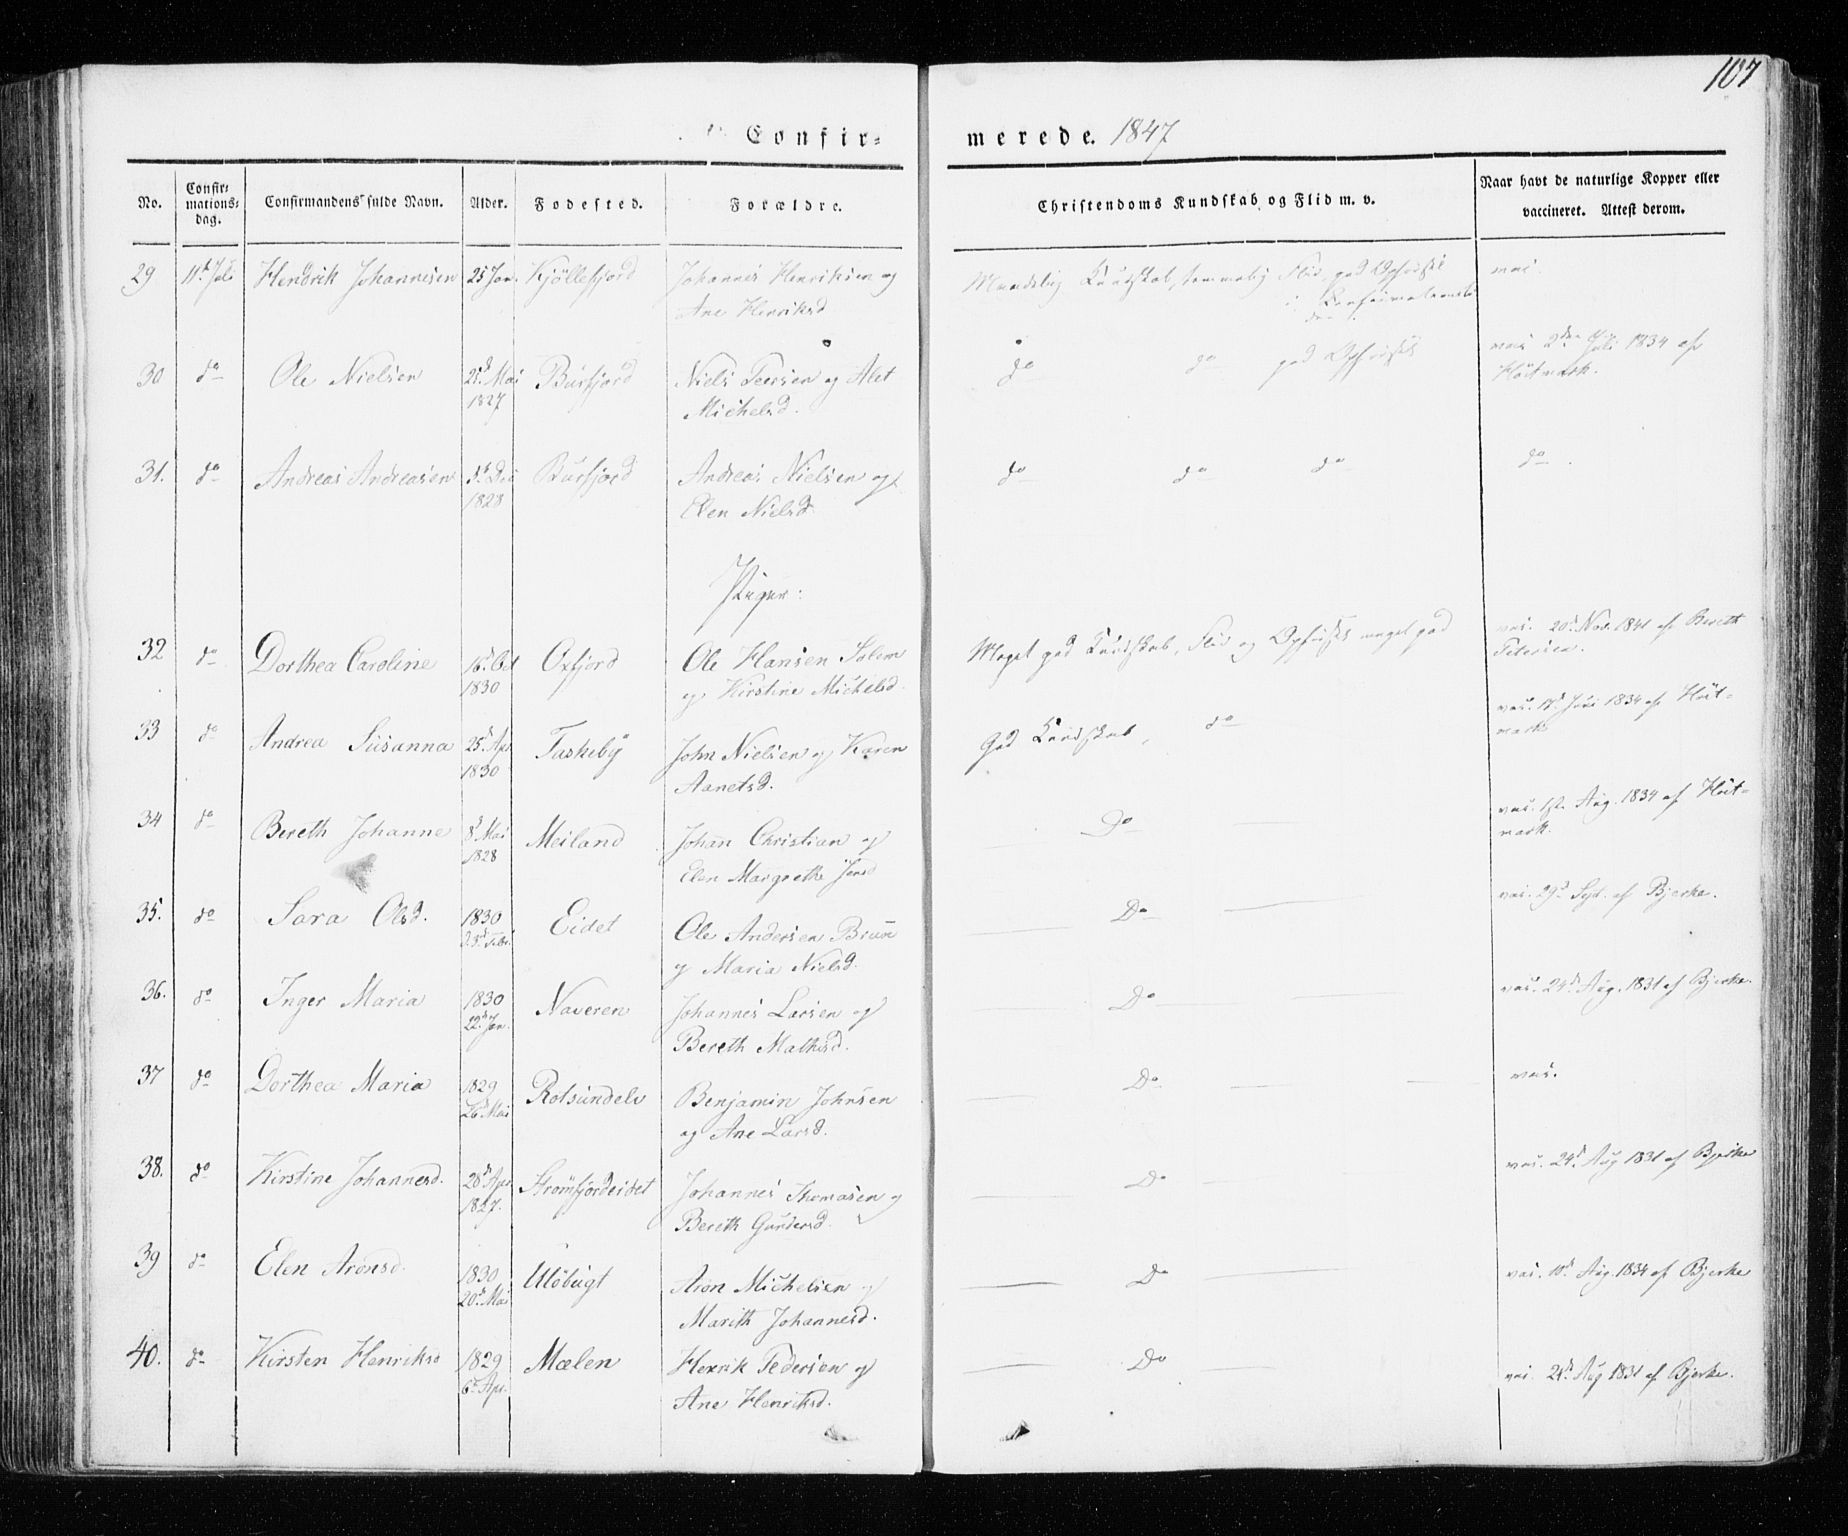 107
Confir-
merede. 1847
No.
Confir-
mations-
dag.
Confirmandens fulde Navn.
Alder.
Fødested.
Forældre.
Christendoms Kundskab og Flid m. v.
Naar havt de naturlige Kopper eller
vaccineret. Attest derom.
29 11te Juli Hendrik Johannesen 25 Jan. Kjöllefjord Johannes Henriksen og
Ane Henriksd
Maadelig Kundskab, temmelig Flid, god Opførsel
i Confirmations
vac.
30 do Ole Nielsen 21d Mai Burfjord Niels Peersen og Alet
1827 Michelsd.
do do god Opførsel
vac 2den Juli 1834 af
Höitmark.
31. do Andreas Andreasen Dec Burfjord Andreas Nielsen og
1828 Elen Nielsd
do do do do
Piger:
32 do Dorthea Caroline 16d Oct Oxfjord Ole Hansen Solem
1830 og Kirstine Michelsd.
Meget god Kundskab, Flid og Opførsel meget god
vac. 20d Nov. 1841 af Bereth
Petersen.
33 do Andrea Susanna 25d Apr Taskeby John Nielsen og Karen
1830 Aanetsd.
God Kundskab, do
vac. 17d Juni 1834 af Höit-
mark
34 do Bereth Johanne 8d Mai Meiland Johan Christian og
1828 Elen Margrethe Jensd
Do
vac. 1st. Aug. 1834 af Höit-
mark.
35. do Sara Olsd. 1830 Eidet Ole Andersen Bruun
23d Febr. og Maria Nielsd.
Do
vac. 29d Sept. af Bjerke.
36. do Inger Maria 1830 Naveren Johannes Larsen og
22d Jan. Bereth Mathisd.
Do
vac. 24d Aug. 1831 af Bjerke.
37 do Dorthea Maria 1829 Rotsundelv Benjamin Johnsen
26d Mai og Ane Larsd.
Do
vac.
38. do Kirstine Johannesd. 28d Apr Strømfjordeidet Johannes Thomasen og
1827. Bereth Gundersd.
Do
vac. 24d Aug 1831 af Bjerke
39 do Elen Aronsd. 1830 Ulöbugt Aron Michelsen og
20d Mai Marith Johannesd.
Do
vac. 10d Aug. 1834 af Bjerke
40. do Kirsten Henriksd 1829 Mælen Henrik Pedersen og
6d Apr. Ane Henriksd.
Do
vac. 24d Aug 1831 af Bjerke.